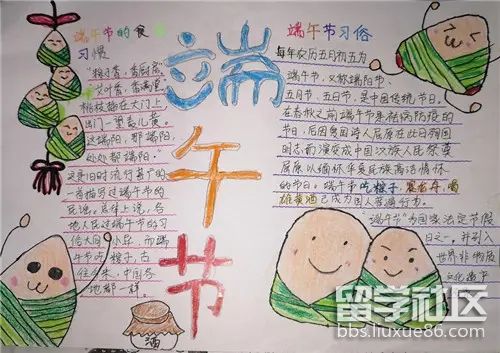 端午节的食
习惯
"粽子香,香厨房。
艾叶香,香满堂。
桃枝插在大门上,
出门一望麦儿黄。
这端阳,那端阳,
处处都端阳。"
这是旧时流行甚广的
一首描写过端午节的
民谣。总体上说,各
地人民过端午节的习
俗大同小异,而端
午节吃粽子,古
往今来,中国各
地都一样。
端
午
节
酒
端午节习俗
每年农历五月初五为
端午节,又称端阳节、
五月节、五日节,是中国传统节日。
在春秋之前端午节是祛病防疫的
节日,后因爱国诗人屈原在此日殉国
明志而演变成中国汉族人民祭奠
屈原以缅怀华夏民族高洁情怀
的节日。端午节吃粽子,赛龙舟,喝
雄黄酒已成为国人普遍行为。
"端午节"为国家法定节假
日之一,并列入
世界非物质
文化遗产
留学社区
bbs.liuxue86.com